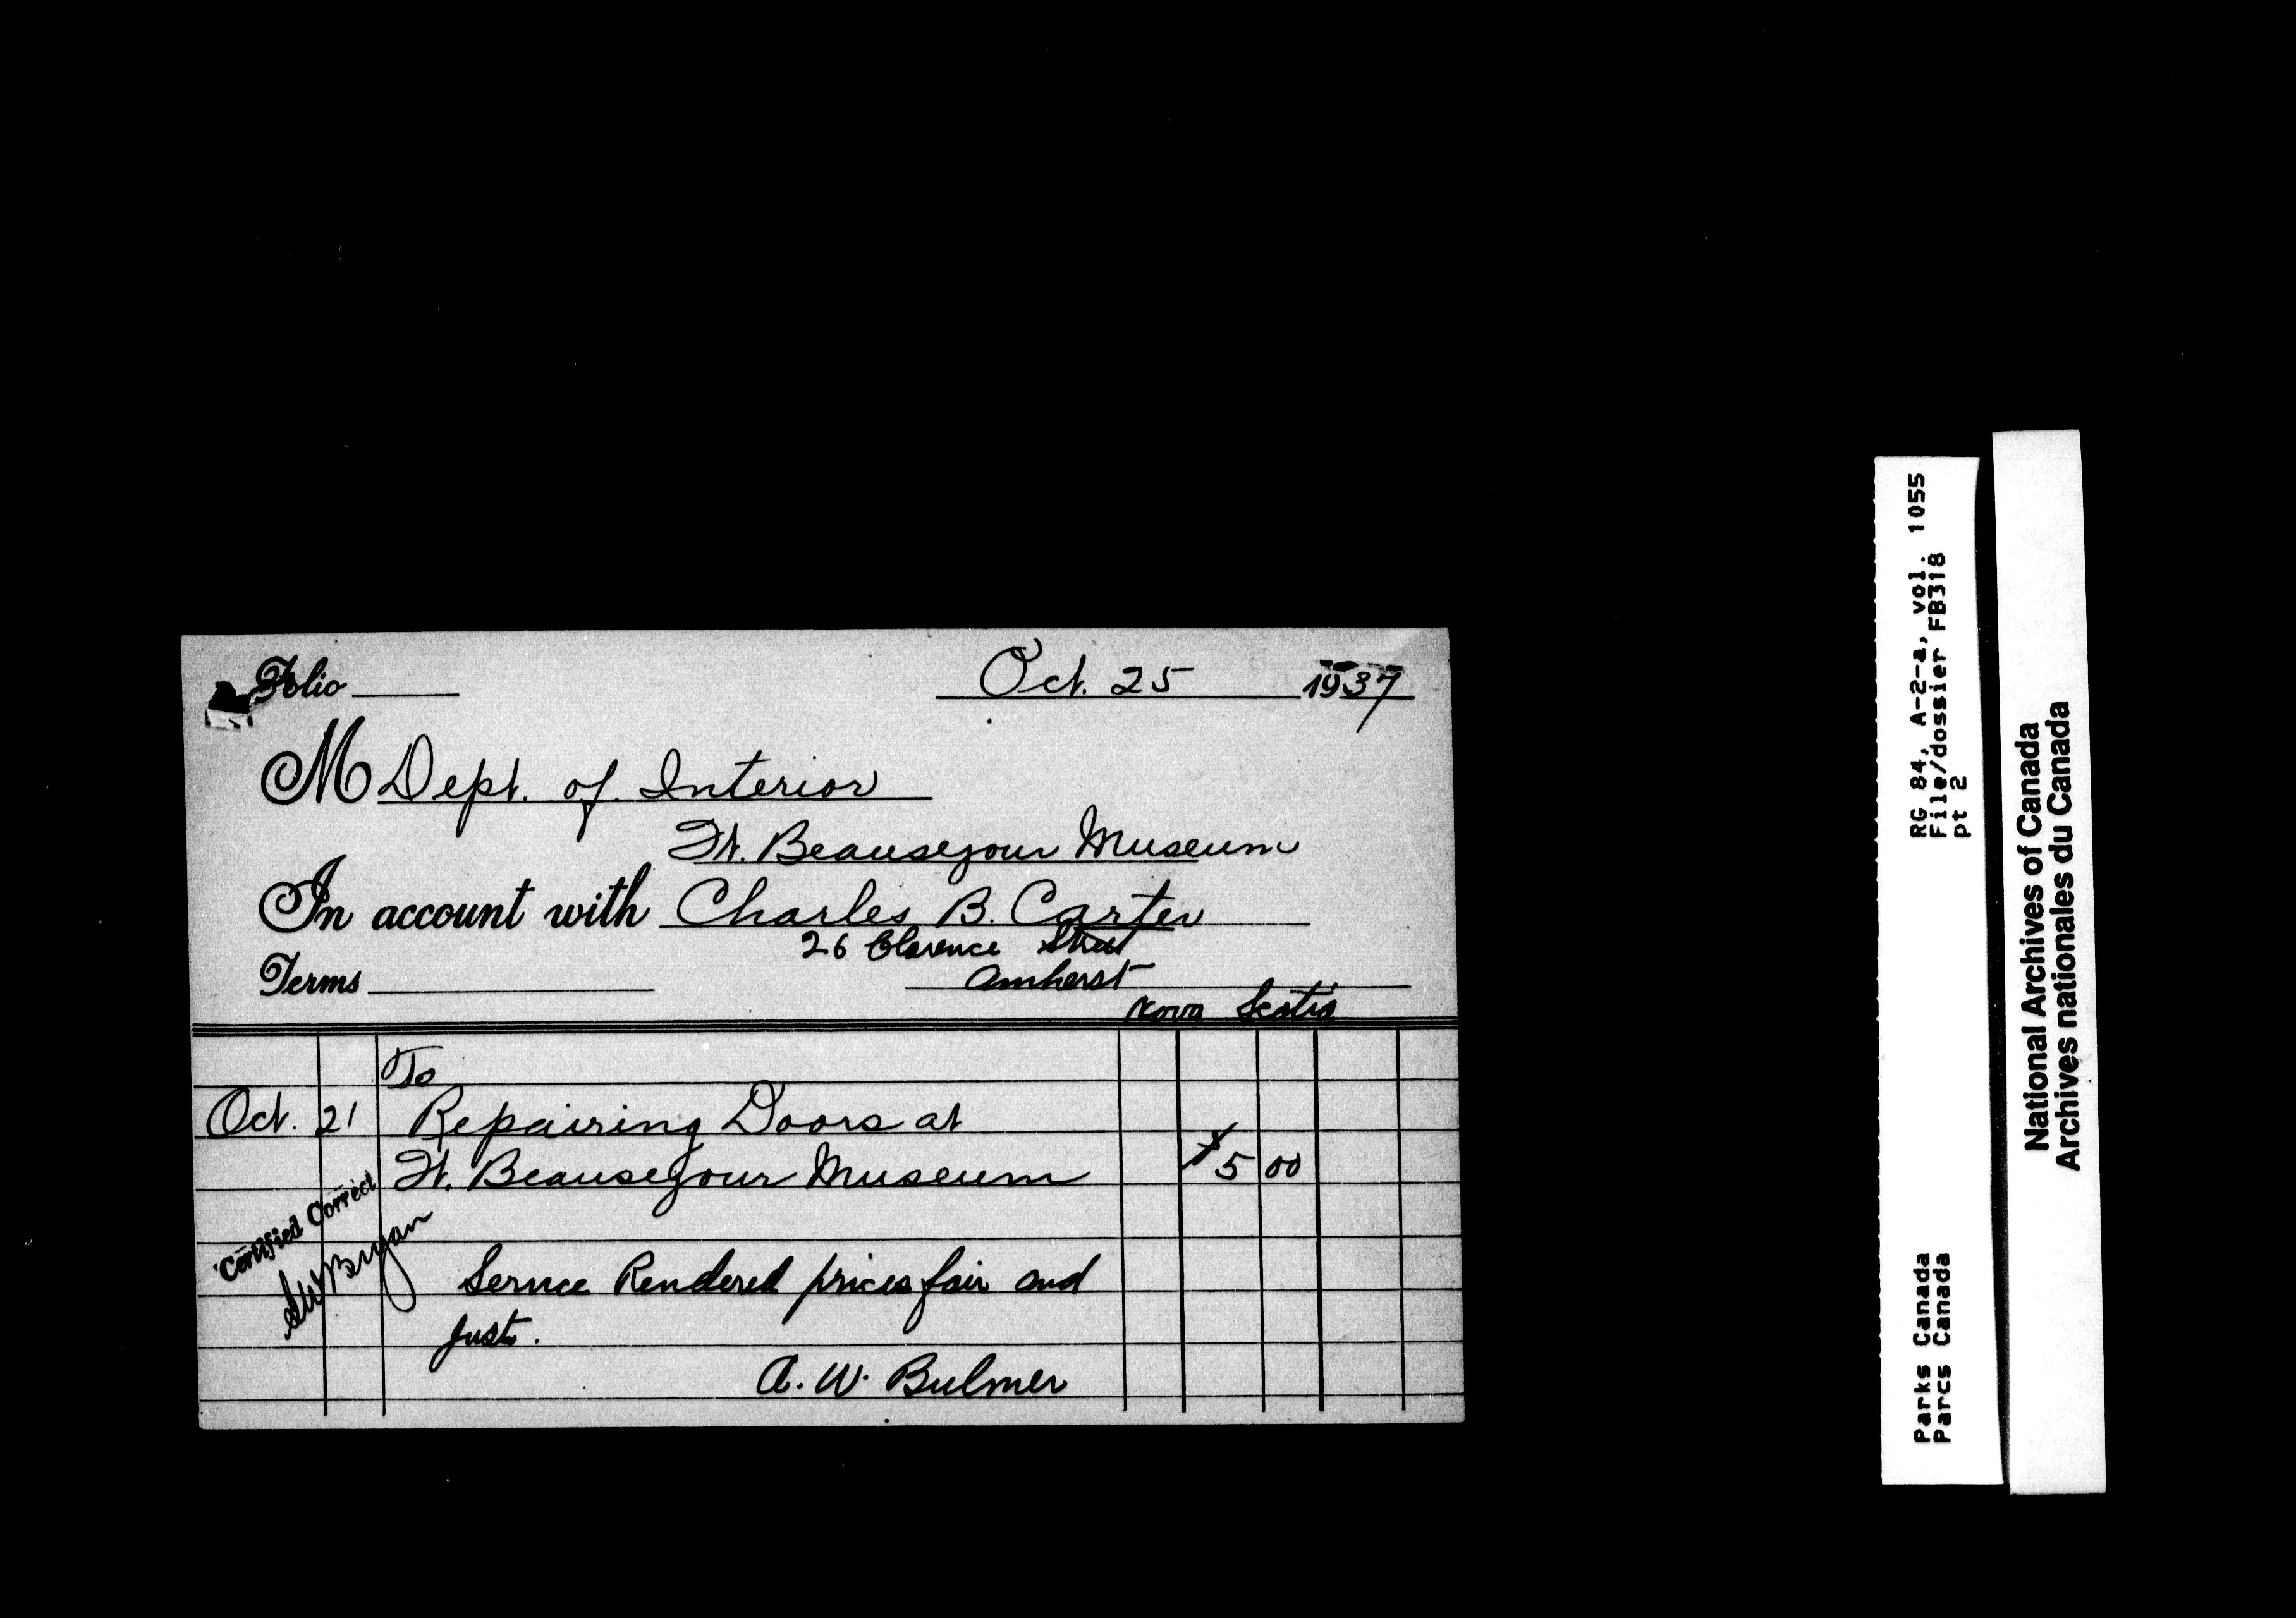 Folio
Oct. 25 1937
M Dept. of Interior
Ft. Beausejour Museum
In account with Charles B. Carter
26 Clarence Street
Terms
Amherst
Nova Scotia
To
Oct. 21 Repairing Doors at
Ft. Beausejour Museum $5 00
Certified Correct
Bryan
Service Rendered prices fair and
just.
A. W. Bulmer
RG 84, A-2-a, vol. 1055
File/dossier FB318
pt 2
Parks Canada
Parcs Canada
National Archives of Canada
Archives nationales du Canada